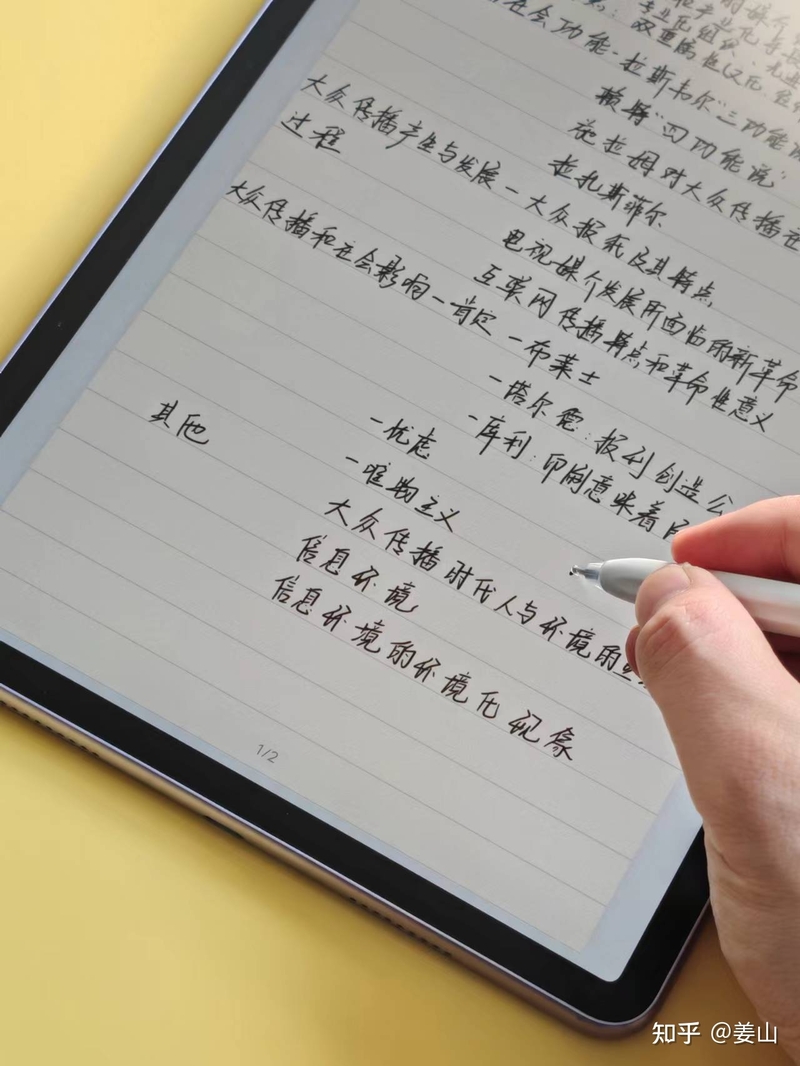 社会功能-拉斯韦尔"三功能
赖特"四功能说"
施拉姆对大众传播
拉扎斯菲尔
大众传播产生与发展-大众报刊及其特点
过程
电视媒介发展所面临的新革命
互联网传播特点和革命性意义
大众传播和社会影响-肯定-布莱士
-塔尔德:报刊创造公
-库利:印刷意味着
-忧虑
-唯物主义
其他
大众传播时代人与环境的
信息环境
信息环境的环境化现象
1/2
知乎 @姜山